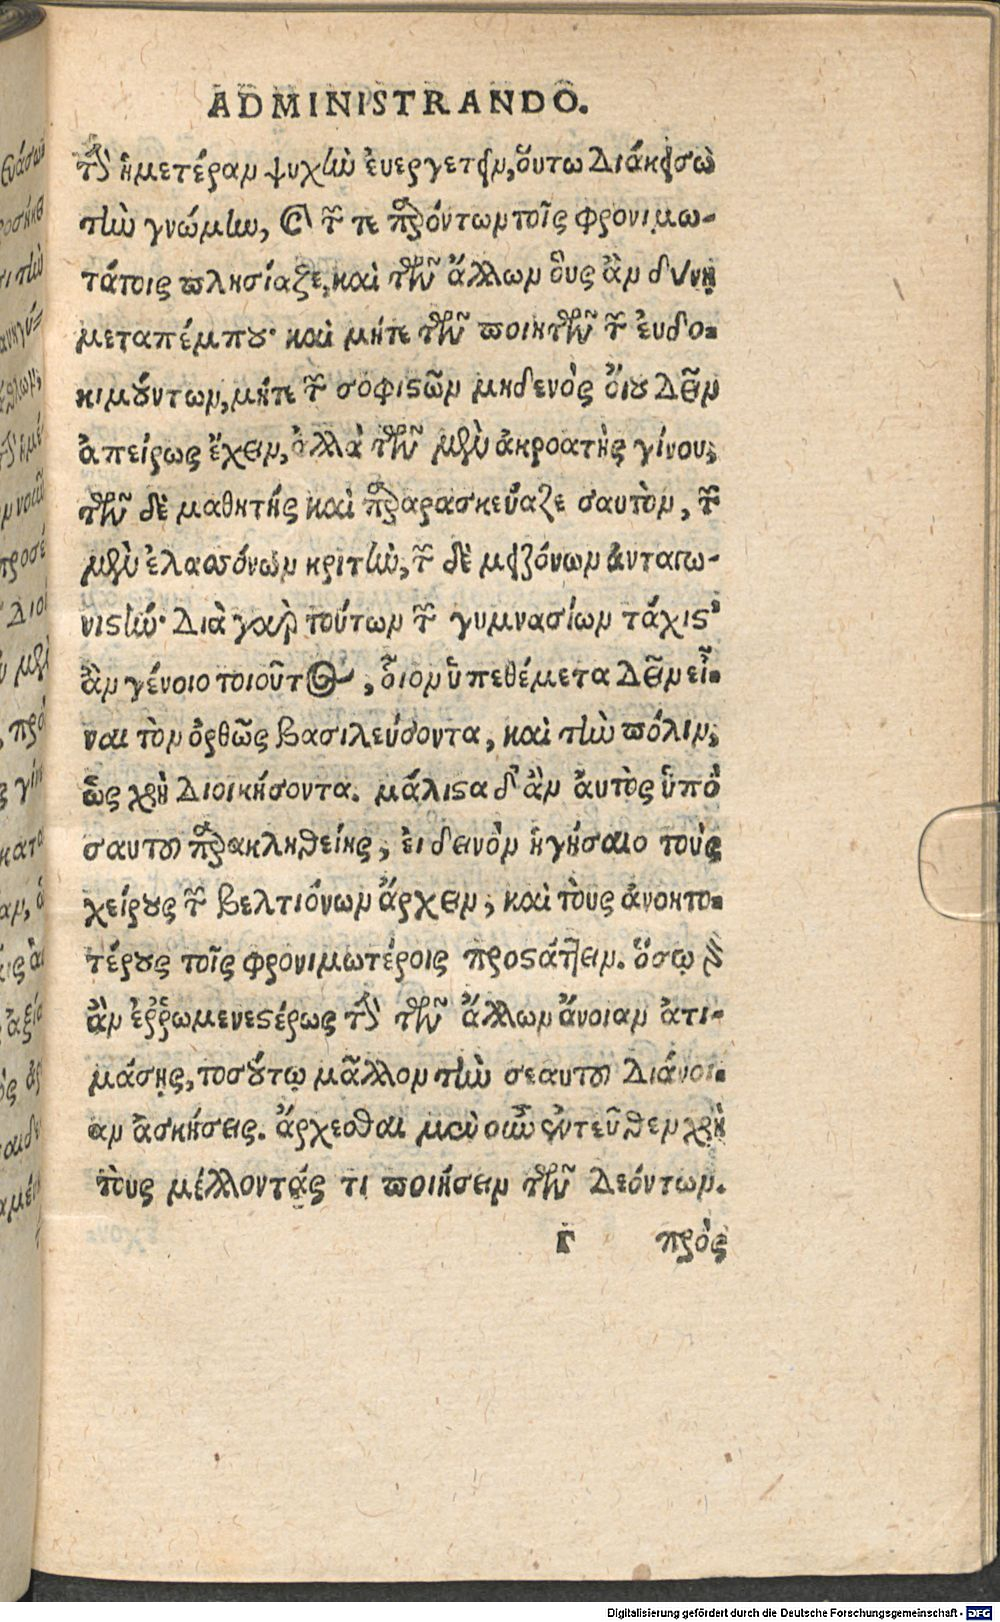 ADMINISTRANDO.
τ ἡμετέραν ψυχὴν ἐυεργετεῖν, ὅυτω διάκεισω
τὴν γνώμην, καὶ τῶν τε παρόντων τοῖς φρονιμω-
τάτοις πλησίαζε, καὶ τῶν ἄλλων ὃυς ἂν δύνῃ
μεταπέμπου· καὶ μήτε τῶν ποιητῶν τῶν ἐυδο-
κιμούντων, μήτε τῶν σοφιστῶν μηδενὸς ὄιου δεῖν
ἀπείρως ἔχειν, ἀλλὰ τῶν μὲν ἀκροατὴς γίνου;
τῶν δὲ μαθητής καὶ παρασκεύαζε σαυτὸν, τῶν
μὲν ἐλασσόνων κριτὴν, τῶν δὲ μειζόνων ἀνταγω-
νιστήν· διὰ γαρ τούτων τῶν γυμνασίων τάχιστ'
ἂν γένοιο τοιοῦτος, ὃιον ὑπεθέμεθα δεῖν εἶ-
ναι τὸν ὀρθῶς βασιλεύσοντα, καὶ τὴν πόλιν;
ὡς χρὴ διοικήσοντα. μάλιστα δ' ἂν ἀυτὸς ὑπὸ
σαυτοῦ παρακληθείης, ἐι δεινὸν ἡγήσαιο τοὺς
χείρους τῶν βελτιόνων ἄρχειν; καὶ τοὺς ἀνοητο-
τέρους τοῖς φρονιμωτέροις προστάττειν. ὅσῳ γὰρ
ἂν ἐῤῥωμενεστέρως τὴν τῶν ἄλλων ἄνοιαν ἀτι-
μάσῃς, τοσούτῳ μᾶλλον τὴν σεαυτοῦ διάνοι-
αν ἀσκήσεις. ἄρχεσθαι μὲν οὖν ἐντεῦθεν χρὴ
τοὺς μέλλοντάς τι ποιήσειν τῶν δεόντων.
Γ πρὸς
Digitalisierung gefördert durch die Deutsche Forschungsgemeinschaft - DFG